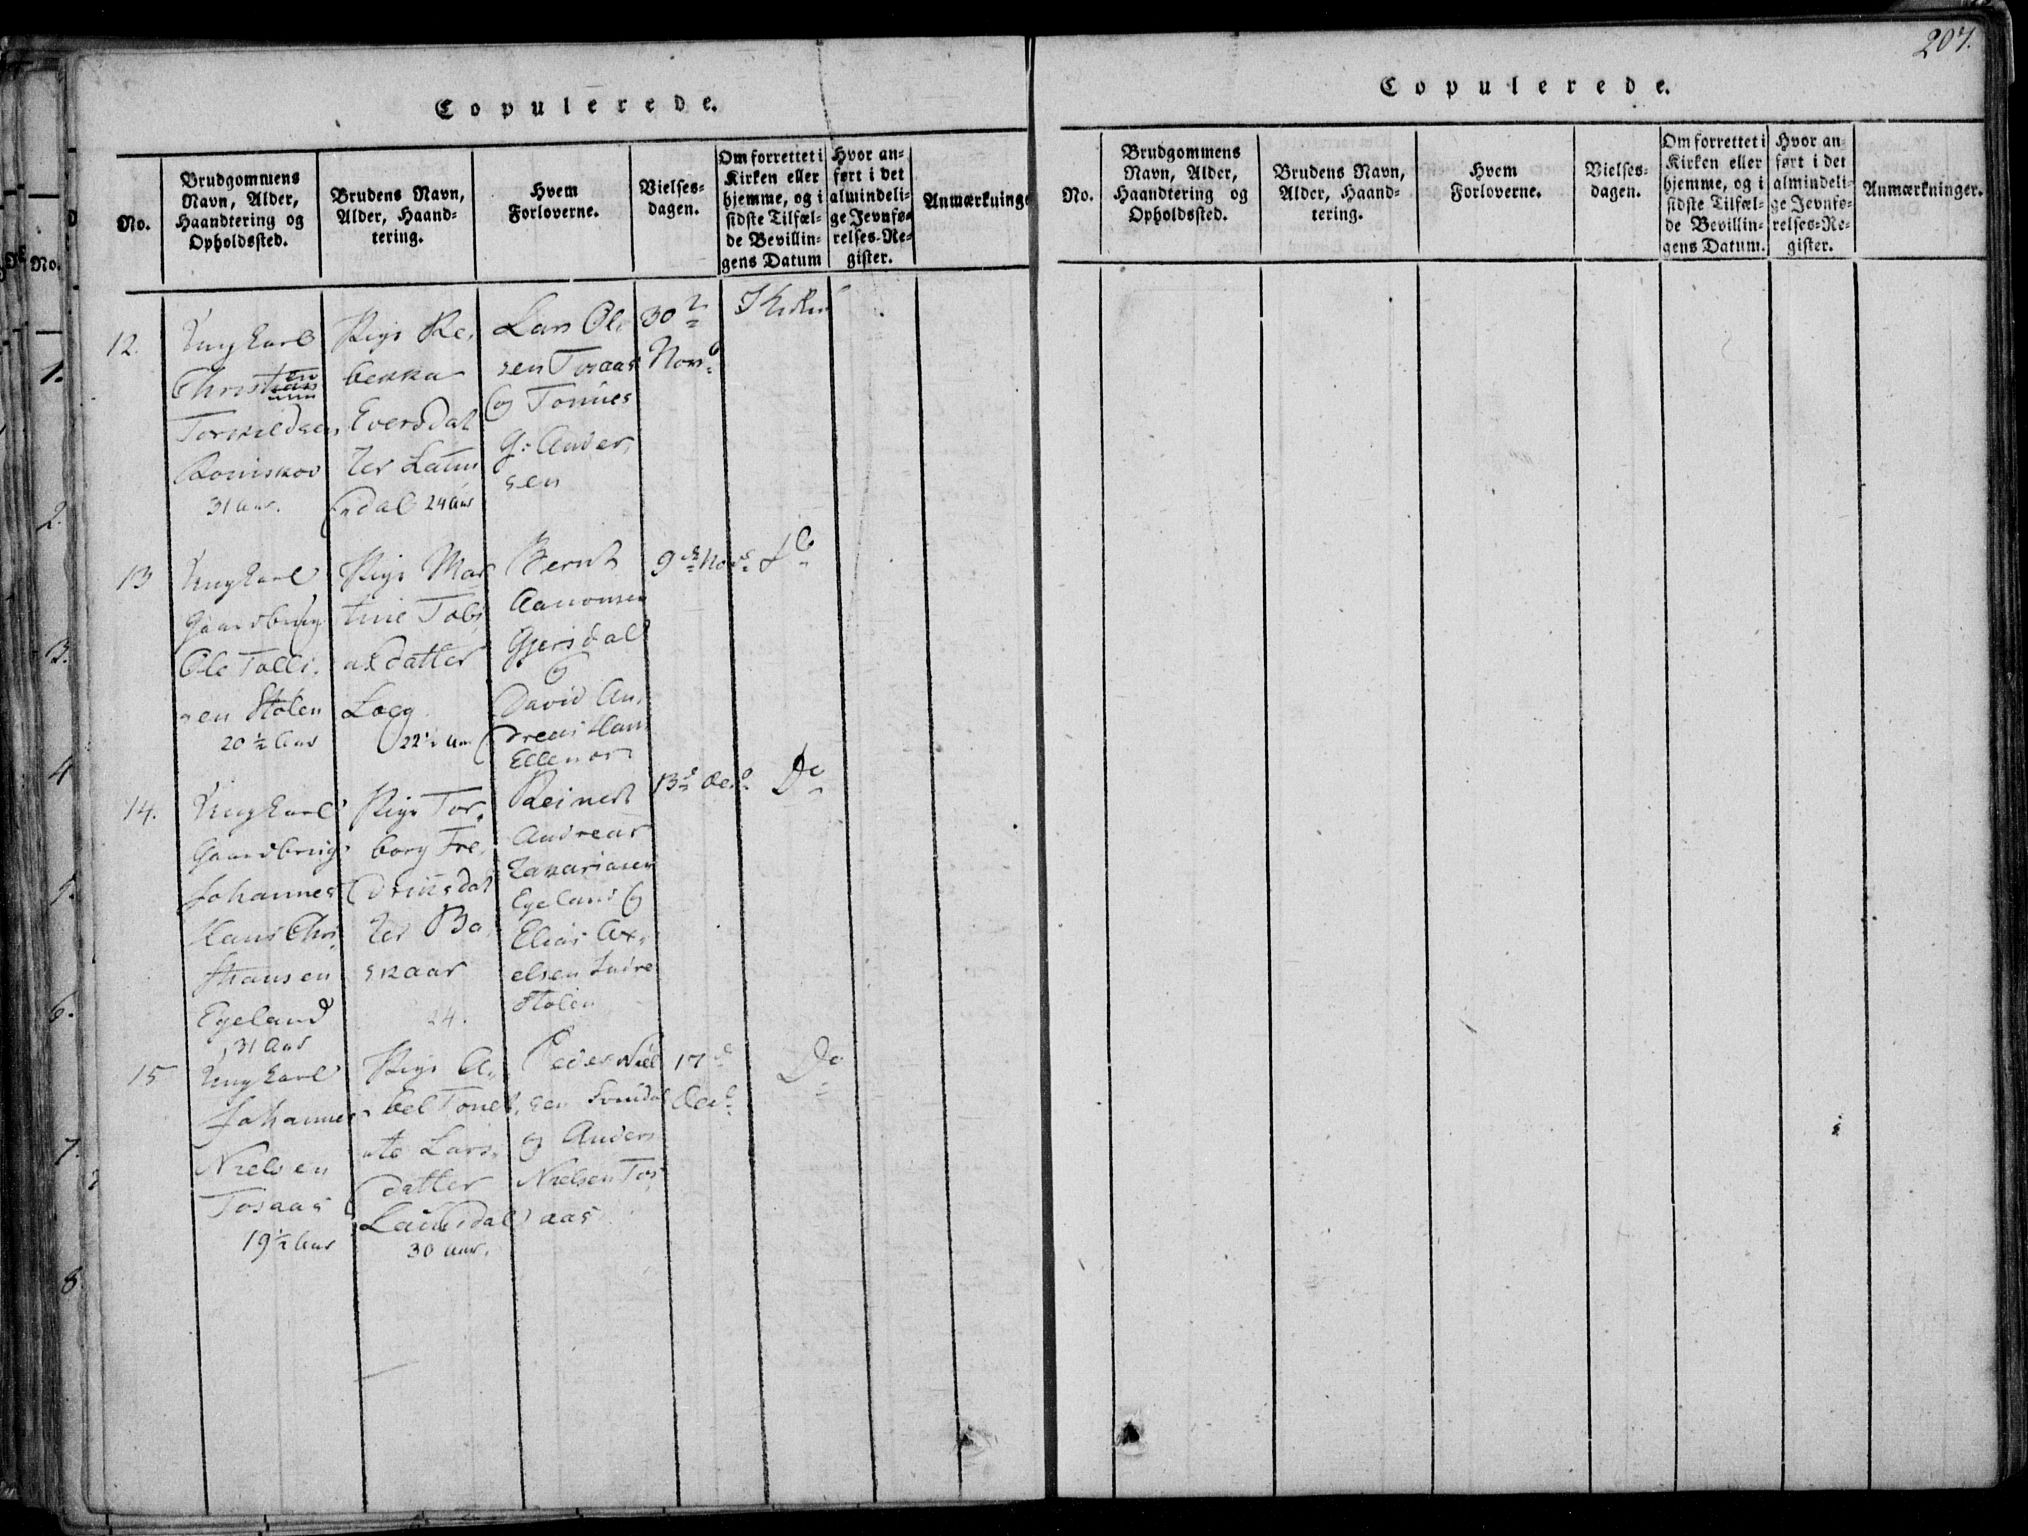 207.
Copulerede.
No.
Brudgommens
Navn, Alder,
Haandtering og
Opholdssted.
Brudens Navn,
Alder, Haand-
tering.
Hvem
Forloverne.
Vielses-
dagen.
Om forrettet i
Kirken eller
hjemme, og i
sidste Tilfæl-
de Bevillin-
gens Datum
Hvor an-
ført i det
almindeli-
ge Jevnfø-
relses-Re-
gister.
Anmærkninge
12.
Ungkarl
Christen
Torkildsen
31 Aar.
Pige Re,
bekka
Eversdat
ter
dal 24 Aar
Lars Ol,
sen Tosaas
og Tønnes
G: Ander,
sen
30
Nov.
I Kirken
13
Ungkarl
Gaardbrug
Ole Tolli,
sen Stølen
20 ½ Aar
Pige Mar
tine Tobi
asdatter
Loeg
22½ Aar
Bernt
Aanonsen
Gjersdal
og
David An,
dreas Hans
Ellenor
9de Nov.
do
14.
Ungkarl
Gaardbrug
Johannes
Hans Chri,
stiansen
Egeland
31 Aar
Pige Tor,
borg Fre,
driksdat
ter Bo
skaar
24.
Reinert
Andreas
Zakariasen
Egeland og
Elias Ax,
elsen Indre
Stølen
13de Dec.
Do
15
Ungkarl
Johannes
Nielsen
Tosaas
19 ½ Aar
Pige A,
bel Tonet,
te Lars,
datter
30 Aar.
Peder Niel
sen
og Anders
Nielsen Tos
aas
17de
Dec.
Do
Copulerede.
No.
Brudgommens
Navn, Alder,
Haandtering og
Opholdssted.
Brudens Navn,
Alder, Haand-
tering.
Hvem
Forloverne.
Vielses-
dagen.
Om forrettet i
Kirken eller
hjemme, og i
sidste Tilfæl-
de Bevillin-
gens Datum.
Hvor an-
ført i det
almindeli-
ge Jevnfø-
relses-Re-
gister.
Anmærkninger.
No.
1.
2.
3.
4
5.
6.
7.
8.